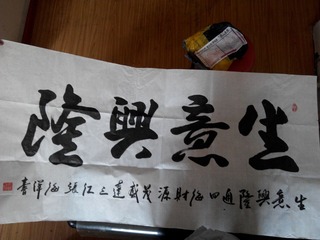 生意興隆
生意興隆通四海財源茂盛達三江張海洋書